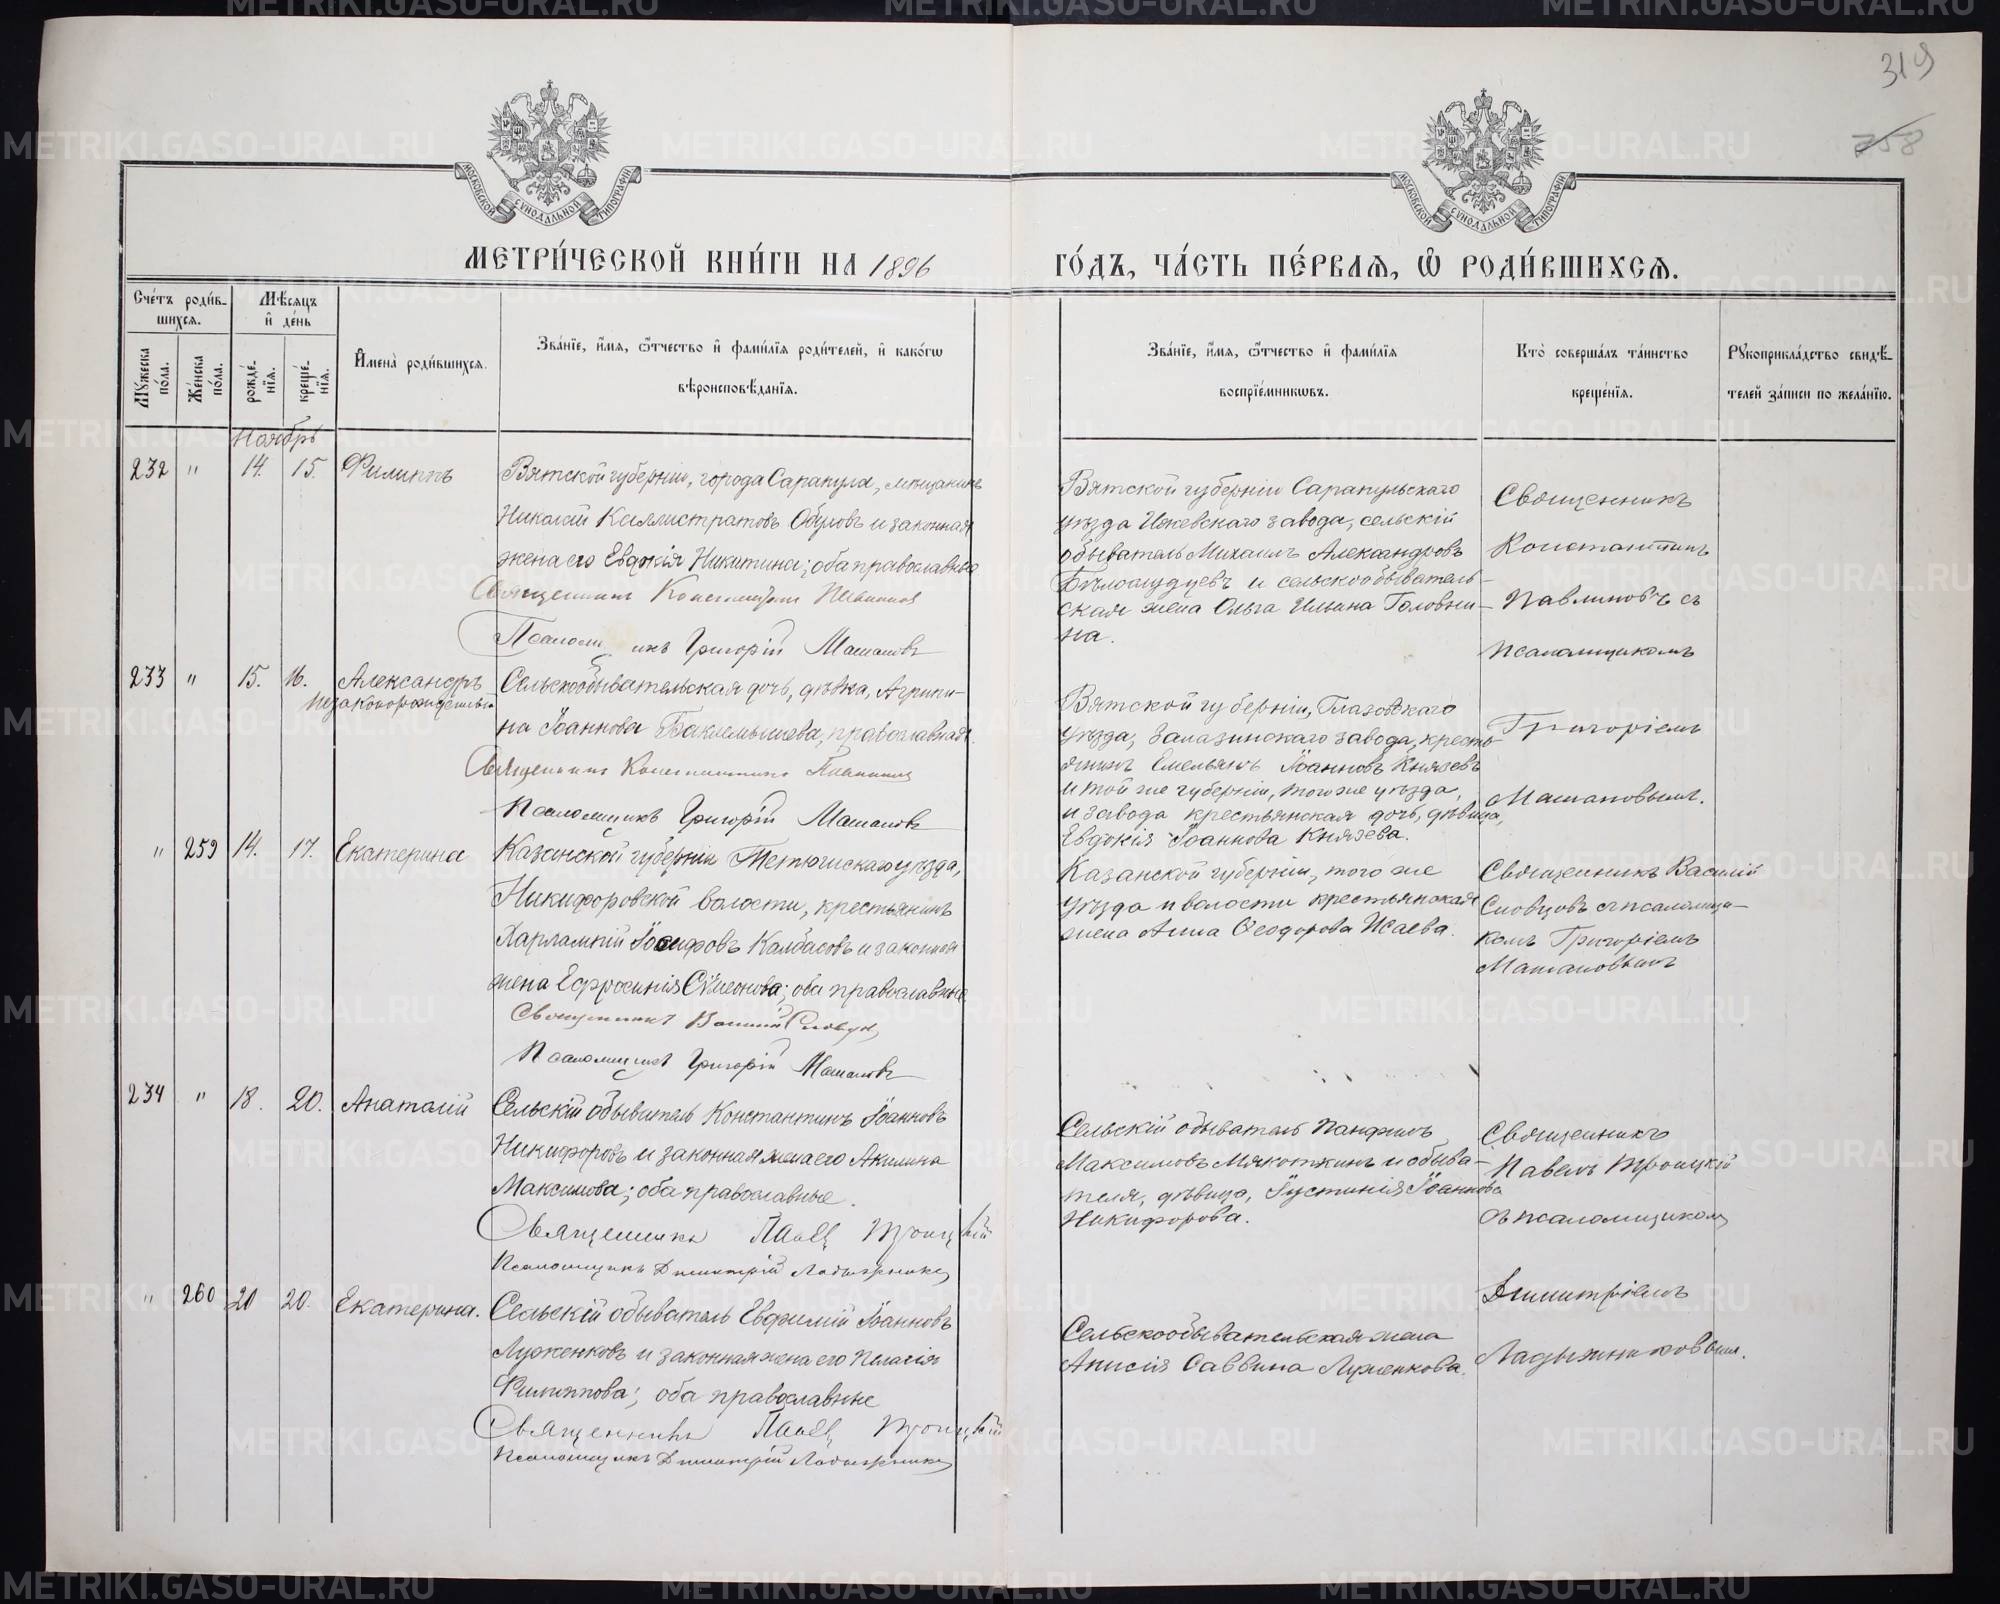 319
258
МОСКОВСКОЙ СѴНОДАЛЬНОЙ ТИПОГРАФИИ
МОСКОВСКОЙ СѴНОДАЛЬНОЙ ТИПОГРАФИИ
МЕТРИ́ЧЕСКОЙ КНИ́ГИ НА 1896 ГО́ДЪ, ЧА́СТЬ ПЕ́РВАЯ, Ѡ РОДИ́ВШИХСЯ.
Сче́тъ роди́в-
шихся.
Мꙋжеска по́ла.
Же́нска по́ла.
Мѣ́сяцъ
и҆ де́нь
рожде́-
нїя.
креще́-
нїя.
И҆мена̀ роди́вшихся.
Зва́нїе, и҆́мя, ѻ҆́тчество и҆ фами́лїя роди́телей, и҆ како́гѡ
вѣроисповѣ́данїя.
Зва́нїе, и҆́мя, ѻ҆́тчество и҆ фами́лїя
воспрїе́мникѡвъ.
Кто̀ соверша́лъ та́инство
креще́нїя.
Рꙋкоприкла́дство свидѣ́-
телей за́писи по жела́нїю.
Ноябрь
232 " 14. 15. Филиппъ
Вятской губерніи, города Сарапула, мещанинъ
Николай Каллистратовъ Обуховъ и законная
жена его Евдокія Никитина; оба православные
Священникъ Константинъ Павлиновъ
Псаломщикъ Григорій Машановъ
Вятской губерніи Сарапульскаго
уѣзда Ижевскаго завода, сельскій
обыватель Михаилъ Александровъ
и сельскообыватель-
ская жена Ольга Ильина Головни-
на.
Священникъ
Константинъ
Павлиновъ съ
псаломщикомъ
Григоріемъ
Машановымъ.
233 " 15. 16. Александръ
незаконорожденный
Сельскообывательская дочь, дѣвка, Агрипи-
на Іоаннова Баклемышева, православная.
Священникъ Константинъ Павлиновъ
Псаломщикъ Григорій Машановъ
Вятской губерніи, Глазовскаго
уѣзда, Залазинскаго завода, кресть-
янинъ Емельянъ Іоанновъ Князевъ
и той же губерніи, того же уѣзда,
и завода крестьянская дочь, дѣвица,
Евдокія Іоаннова Князева.
" 259 14. 17. Екатерина
Казанской губерніи Тетюшскаго уѣзда,
Никифоровской волости, крестьянинъ
Харлампій Іосифовъ Калбасовъ и законная
жена Ефросинія Сімеонова; оба православные.
Священникъ Василій Словцовъ
Псаломщикъ Григорій Машановъ
Казанской губерніи, того же
уѣзда и волости крестьянская
жена Анна Ѳеодорова Исаева.
Священникъ Василій
Словцовъ съ псаломщи-
комъ Григоріемъ
Машановымъ
234 " 18. 20. Анатолій
Сельскій обыватель Константинъ Іоанновъ
Никифоровъ и законная жена его Акилина
Максимова; оба православные.
Священникъ Павелъ Троицкій
Псаломщикъ Димитрій Ладыжниковъ
Сельскій обыватель Панфилъ
Максимовъ Мякоткинъ и обыва-
теля, дѣвица, Іустинія Іоаннова
Никифорова.
Священникъ
Павелъ Троицкій
съ псаломщикомъ
Димитріемъ
Ладыжниковымъ.
" 260 20 20. Екатерина.
Сельскій обыватель Евфимій Іоанновъ
Лузженковъ и законная жена его Пелагія
Филиппова; оба православные
Священникъ Павелъ Троицкій
Псаломщикъ Димитрій Ладыжниковъ
Сельскообывательская жена
Анисія Саввина
METRIKI.GASO-URAL.RU